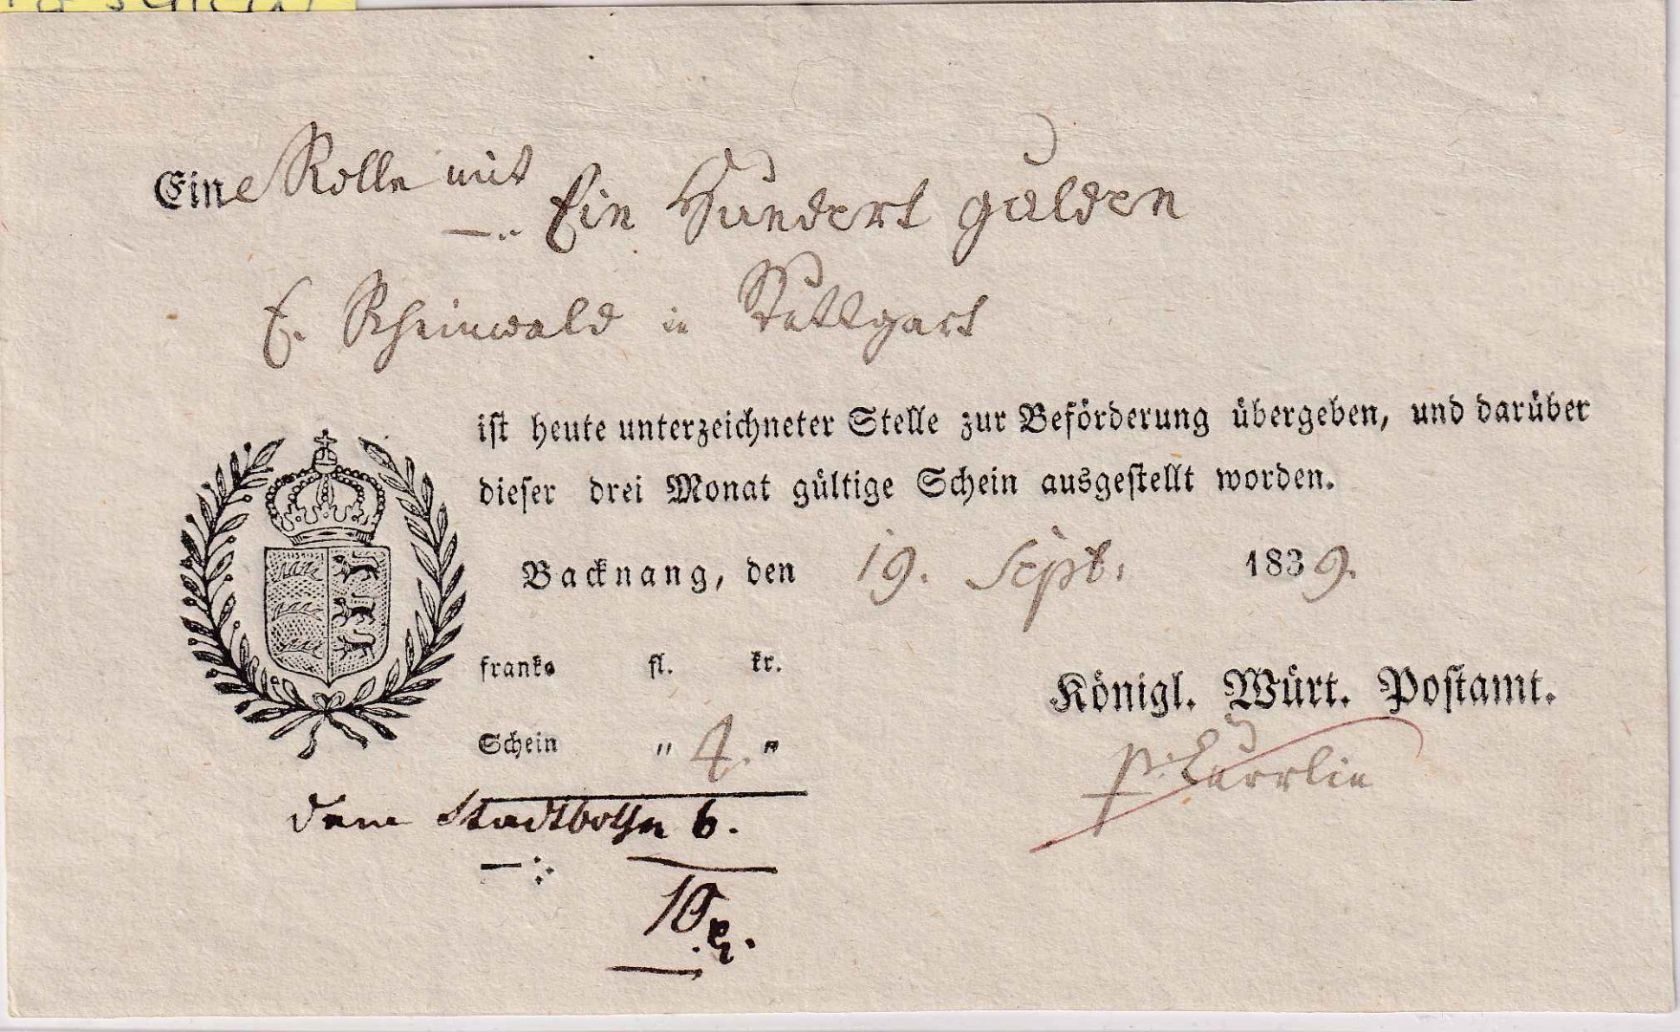 Eine Rolle mit
Ein Hundert gulden
E. Rheinwald in Stuttgart
ist heute unterzeichneter Stelle zur Beförderung übergeben, und darüber
dieser drei Monat gültige Schein ausgestellt worden.
Backnang, den 19. Sept. 1839.
franko fl. kr.
Königl. Würt. Postamt.
Schein " 4. "
dem Stadtbothen 6.
10